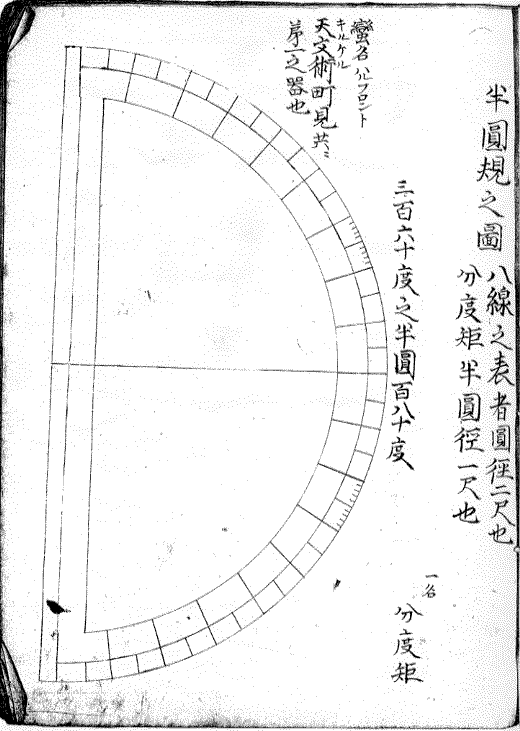 半圓規之圖
八線之表者圓徑二尺也
分度矩半圓徑一尺也
一名
分度矩
三百六十度之半圓百八十度
蠻名ハルフロント
キルケル
天文術町見共ニ
第一之器也